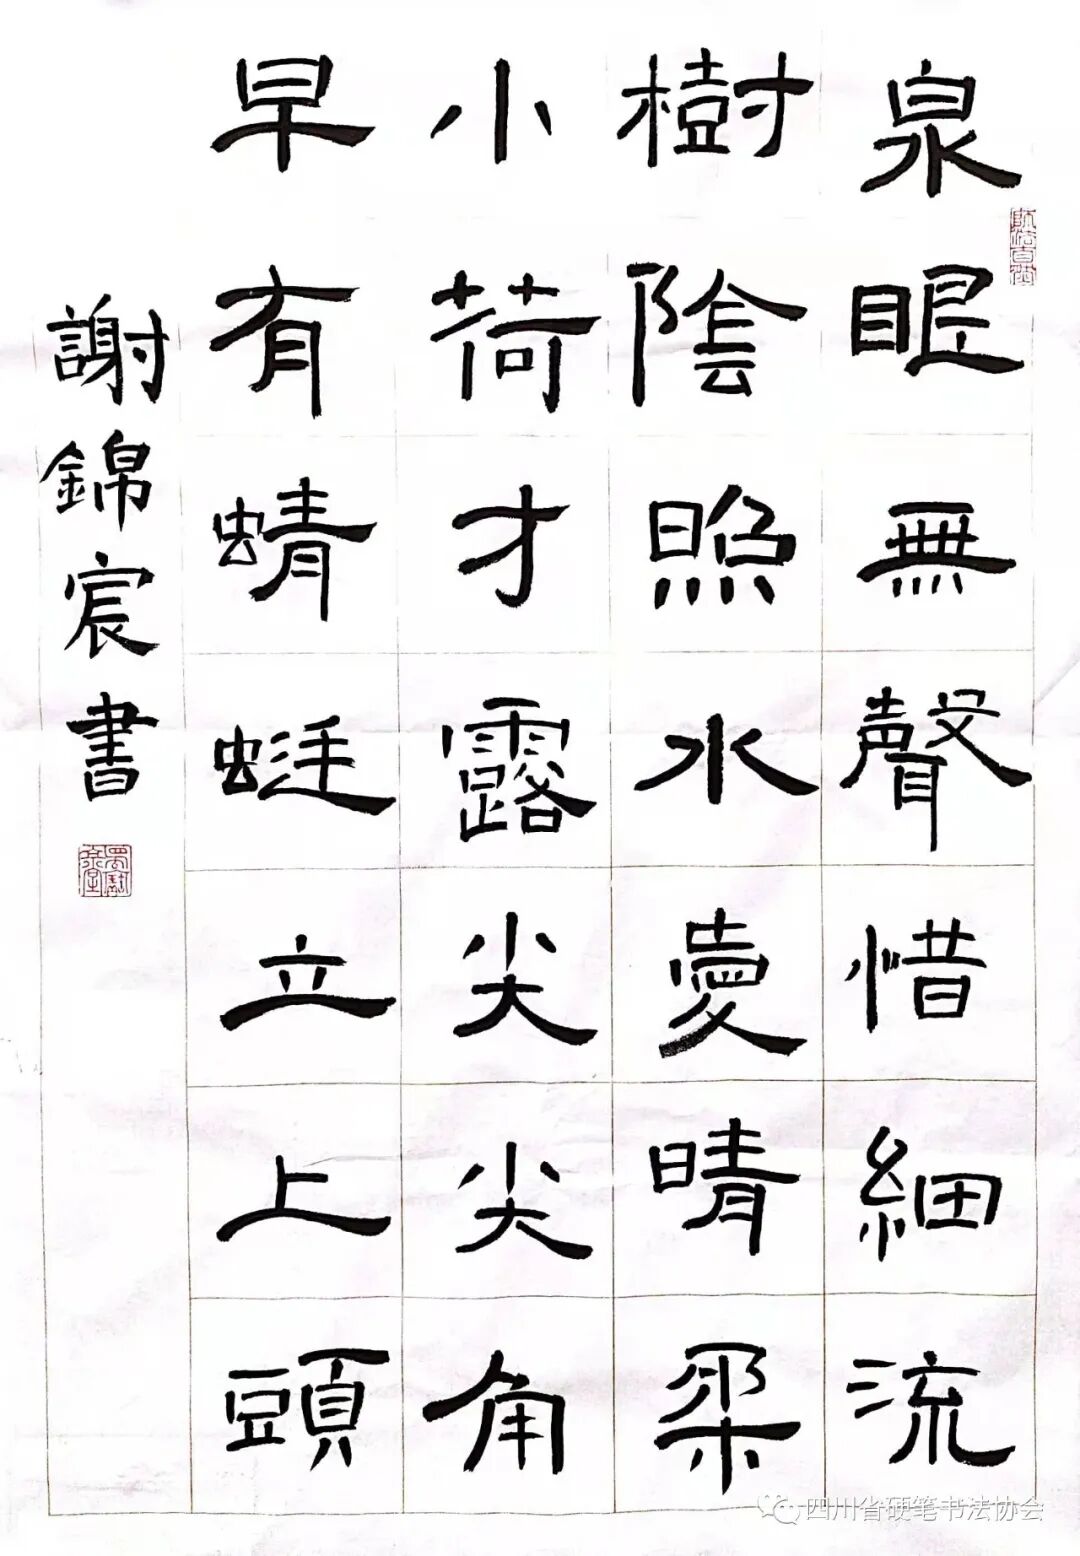 泉眼無聲惜細流
樹陰照水愛晴柔
小荷才露尖尖角
早有蜻蜓立上頭
謝錦宸書
四川省硬笔书法协会